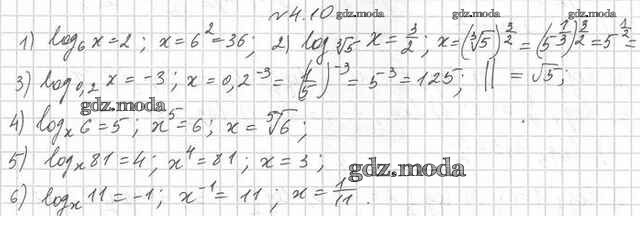 №4.10 gdz.moda gdz.moda
1) log₆x = 2; x = 6² = 36; 2) log_∛5 x = 3/2; x = (∛5)^(3/2) = (5^(1/3))^(3/2) = 5^(1/2) =
3) log₀,₂ x = -3; x = 0,2⁻³ = (1/5)⁻³ = 5⁻³ = 125; || = √5;
gdz.moda
4) logₓ6 = 5; x⁵ = 6; x = ⁵√6;
5) logₓ81 = 4; x⁴ = 81; x = 3;
gdz.moda
6) logₓ11 = -1; x⁻¹ = 11; x = 1/11.